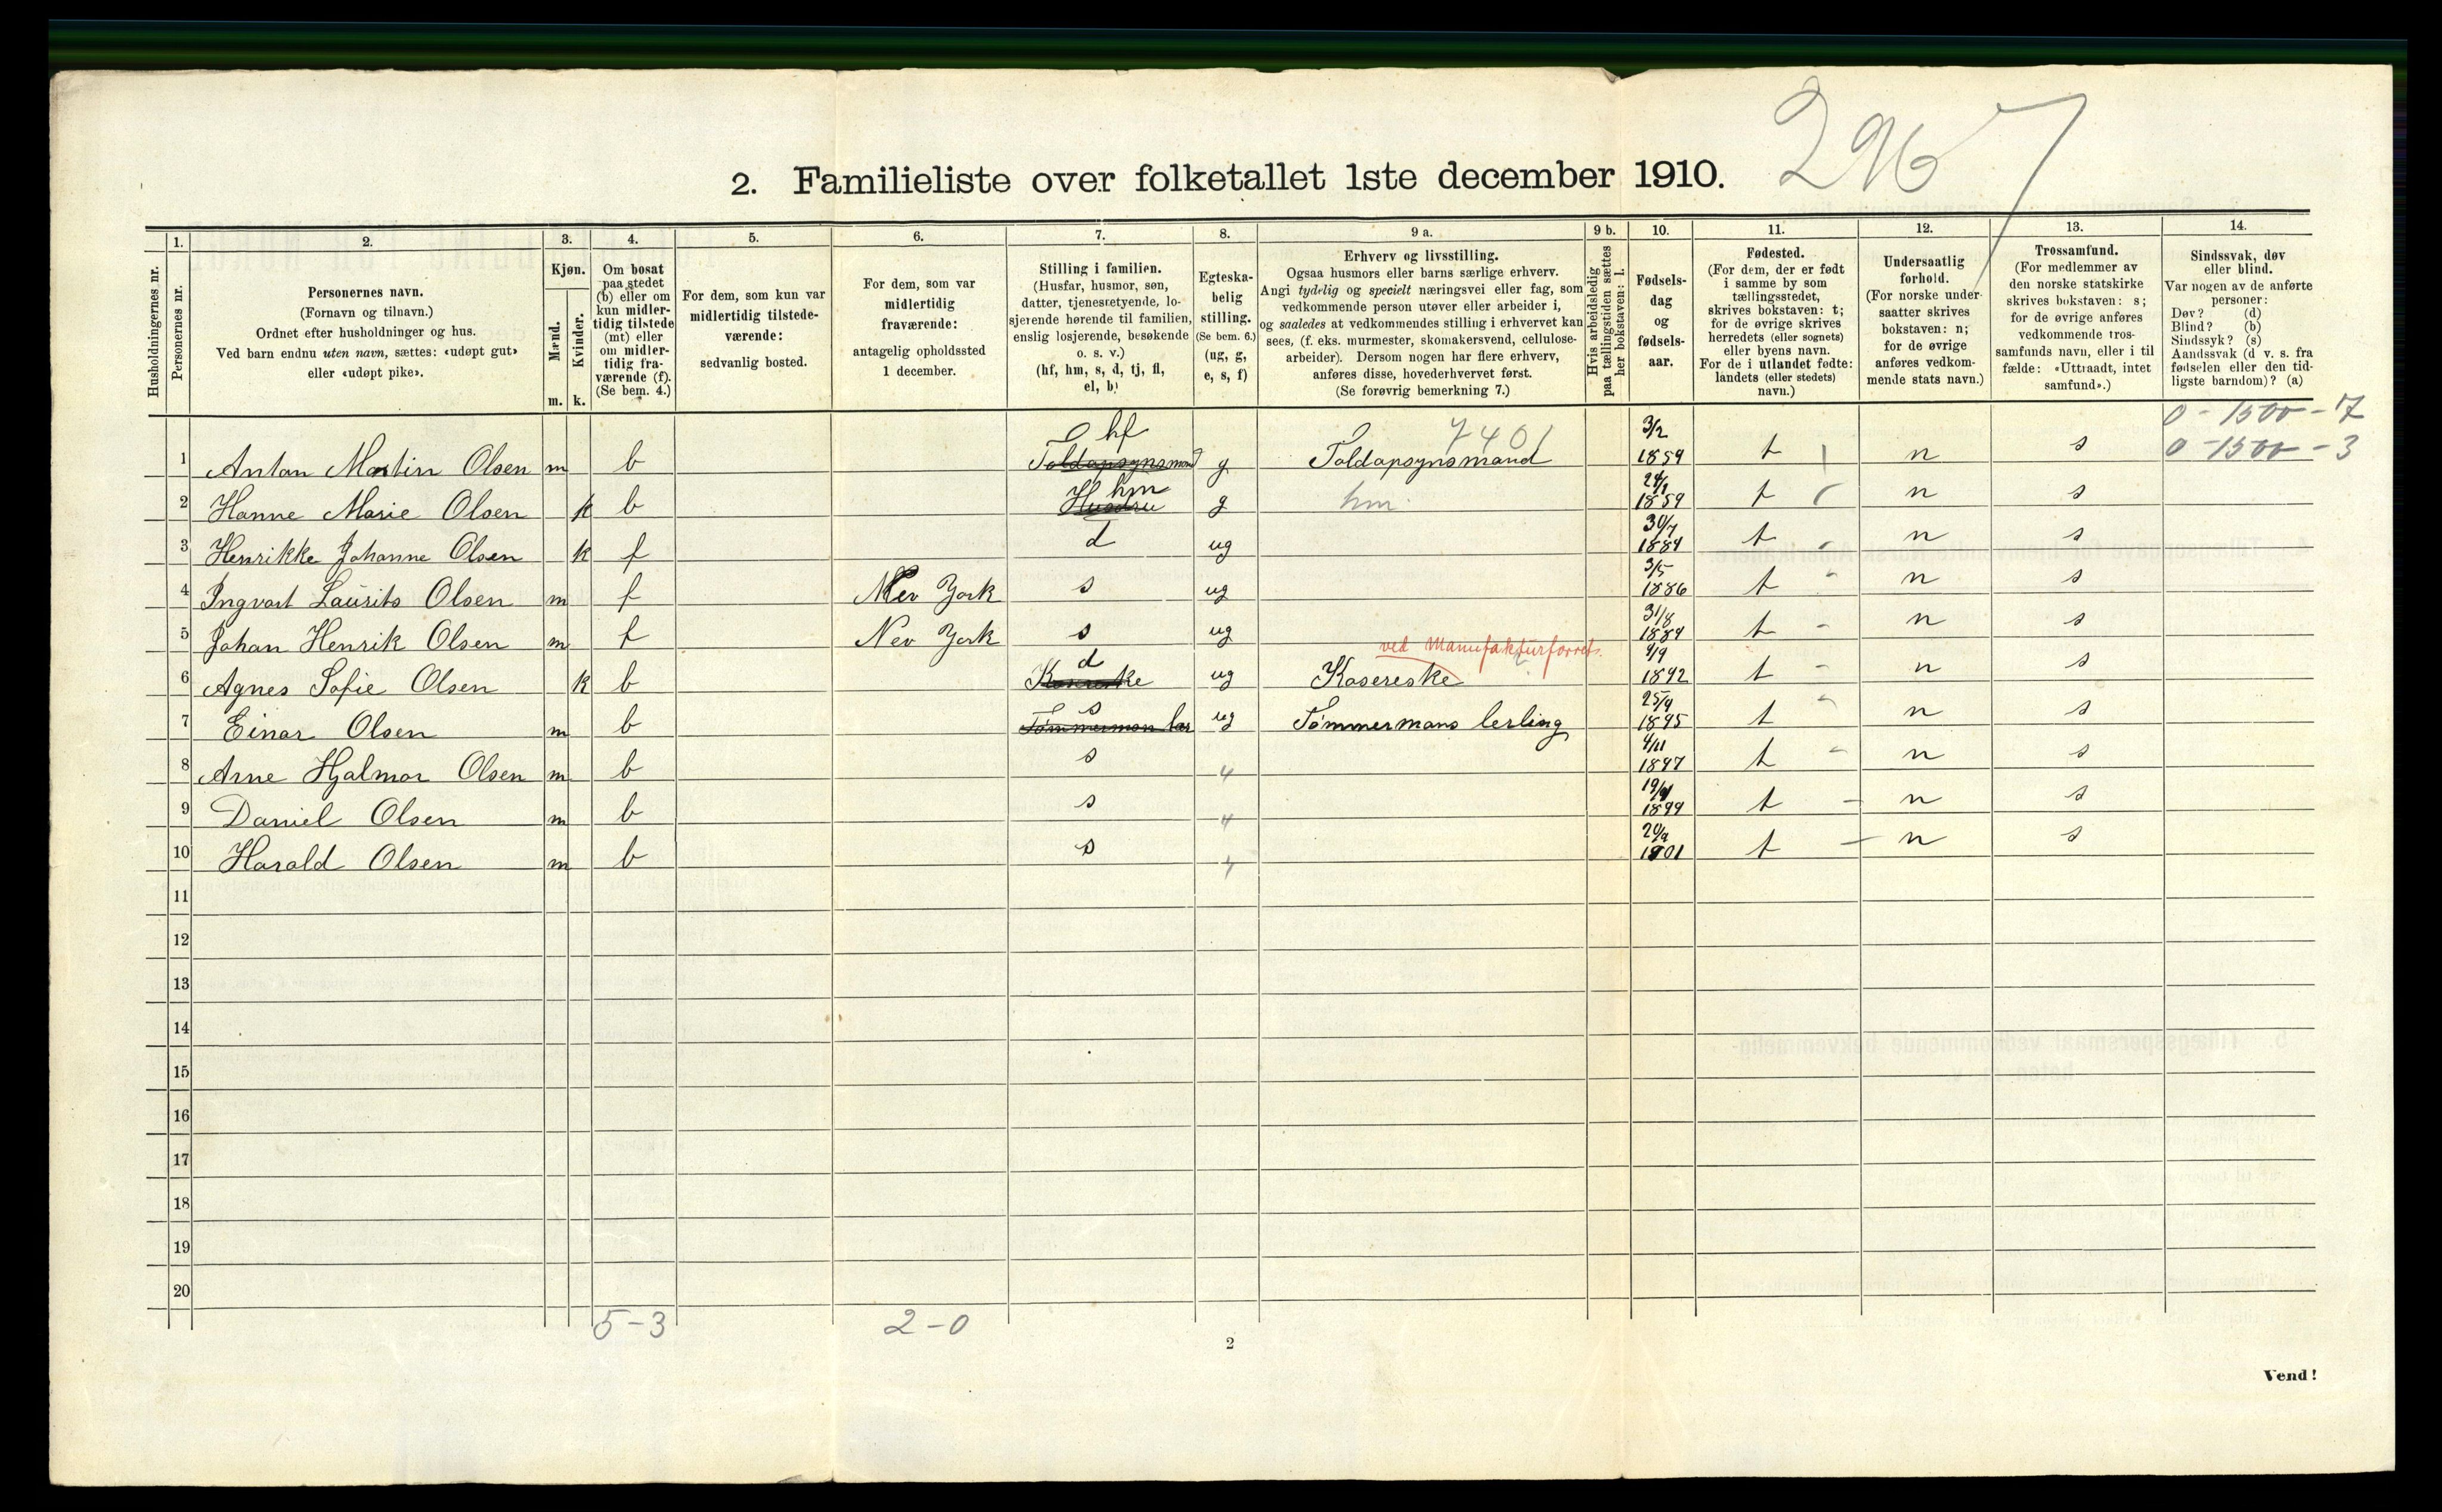 2967
2. Familieliste over folketallet 1ste december 1910.
Husholdningernes nr.
1. Personernes nr.
2. Personernes navn.
(Fornavn og tilnavn.)
Ordnet efter husholdninger og hus.
Ved barn endnu uten navn, sættes: «udøpt gut»
eller «udøpt pike».
3. Kjøn.
Mænd. m.
Kvinder. k.
4. Om bosat
paa stedet
(b) eller om
kun midler-
tidig tilstede
(mt) eller
om midler-
tidig fra-
værende (f).
(Se bem. 4.)
5. For dem, som kun var
midlertidig tilstede-
værende:
sedvanlig bosted.
6. For dem, som var
midlertidig
fraværende:
antagelig opholdssted
1 december.
7. Stilling i familien.
(Husfar, husmor, søn,
datter, tjenestetyende, lo-
sjerende hørende til familien,
enslig losjerende, besøkende
o. s. v.)
(hf, hm, s, d, tj, fl,
el, b)
8. Egteska-
belig
stilling.
(Se bem. 6.)
(ug, g,
e, s, f)
9 a. Erhverv og livsstilling.
Ogsaa husmors eller barns særlige erhverv.
Angi tydelig og specielt næringsvei eller fag, som
vedkommende person utøver eller arbeider i,
og saaledes at vedkommendes stilling i erhvervet kan
sees, (f. eks. murmester, skomakersvend, cellulose-
arbeider). Dersom nogen har flere erhverv,
anføres disse, hovederhvervet først.
(Se forøvrig bemerkning 7.)
9 b. Hvis arbeidsledig
paa tællingstiden sættes
her bokstaven: l.
10. Fødsels-
dag
og
fødsels-
aar.
11. Fødested.
(For dem, der er født
i samme by som
tællingsstedet,
skrives bokstaven: t;
for de øvrige skrives
herredets (eller sognets)
eller byens navn.
For de i utlandet fødte:
landets (eller stedets)
navn.)
12. Undersaatlig
forhold.
(For norske under-
saatter skrives
bokstaven: n;
for de øvrige
anføres vedkom-
mende stats navn.)
13. Trossamfund.
(For medlemmer av
den norske statskirke
skrives bokstaven: s;
for de øvrige anføres
vedkommende tros-
samfunds navn, eller i til
fælde: «Uttraadt, intet
samfund».)
14. Sindssvak, døv
eller blind.
Var nogen av de anførte
personer:
Døv? (d)
Blind? (b)
Sindssyk? (s)
Aandssvak (d v. s. fra
fødselen eller den tid-
ligste barndom)? (a)
0-1500-7
1 Anton Martin Olsen m b Toldopsynsmand hf g Toldopsynsmand 7401 3/2 1859 t n s 0-1500-3
2 Hanne Marie Olsen k b Husfru hm g hm 24/1 1859 t n s
3 Henrikke Johanne Olsen k f d ug 30/7 1884 t n s
4 Ingvart Laurits Olsen m f Nev York s ug 3/5 1886 t n s
5 Johan Henrik Olsen m f Nev York s ug 31/8 1889 t n s
6 Agnes Sofie Olsen k b d ug Kasereske ved Manufakturforret. 9/9 1892 t n s
7 Einar Olsen m b s ug Tømmermans lerling 25/9 1895 t n s
8 Arne Hjalmar Olsen m b s 4 4/11 1897 t n s
9 Daniel Olsen m b s 4 1899 t n s
10 Harald Olsen m b s 4 20/9 1901 t n s
11
12
13
14
15
16
17
18
19
20
5-3 2-0
2
Vend!